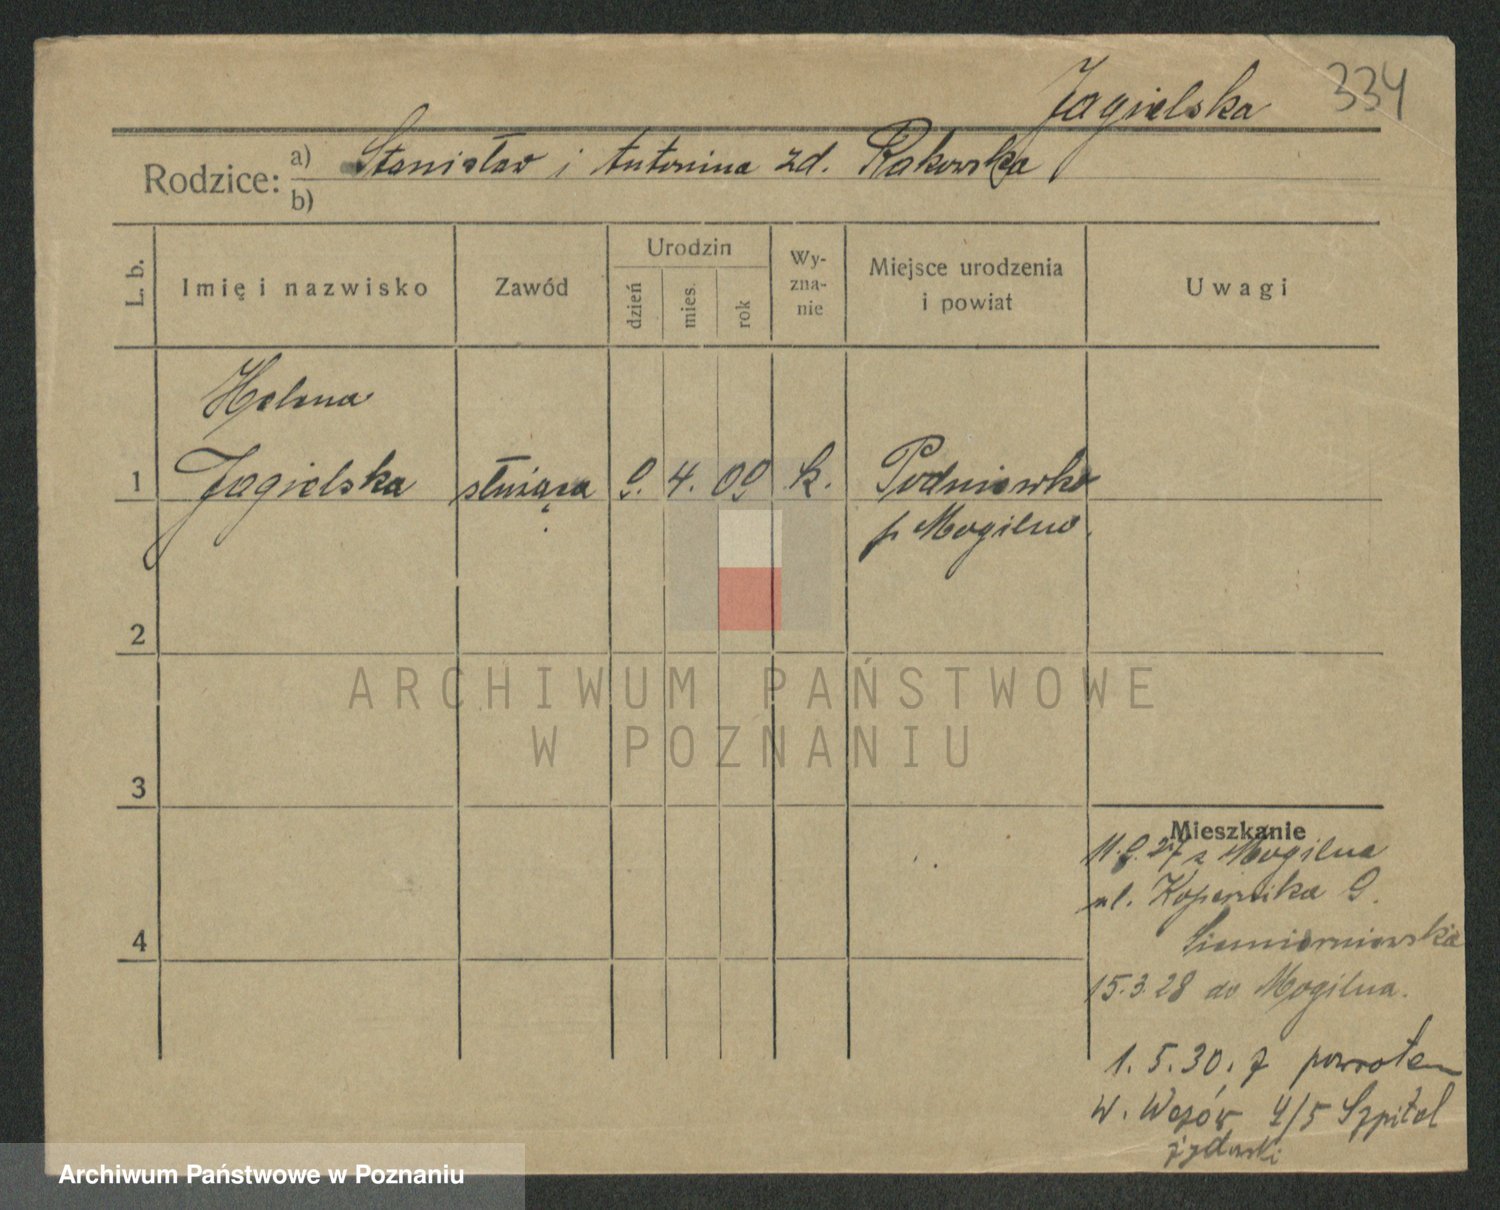 Jagielska 334
Rodzice: a) Stanisław i Antonina zd. Rakowska
b)
L. b.
Imię i nazwisko
Zawód
Urodzin
dzień
mies.
rok
Wy-
zna-
nie
Miejsce urodzenia
i powiat
Uwagi
Helena
1 Jagielska służąca 9. 4. 09 k. Podniewko
p Mogilno.
2
ARCHIWUM PAŃSTWOWE
W POZNANIU
3
Mieszkanie
11.9.27 z Mogilna
ul. Kopernika 9.
4
15.3.28 do Mogilna.
1.5.30. z powrotem
W. 4/5 Szpital
żydowski
Archiwum Państwowe w Poznaniu